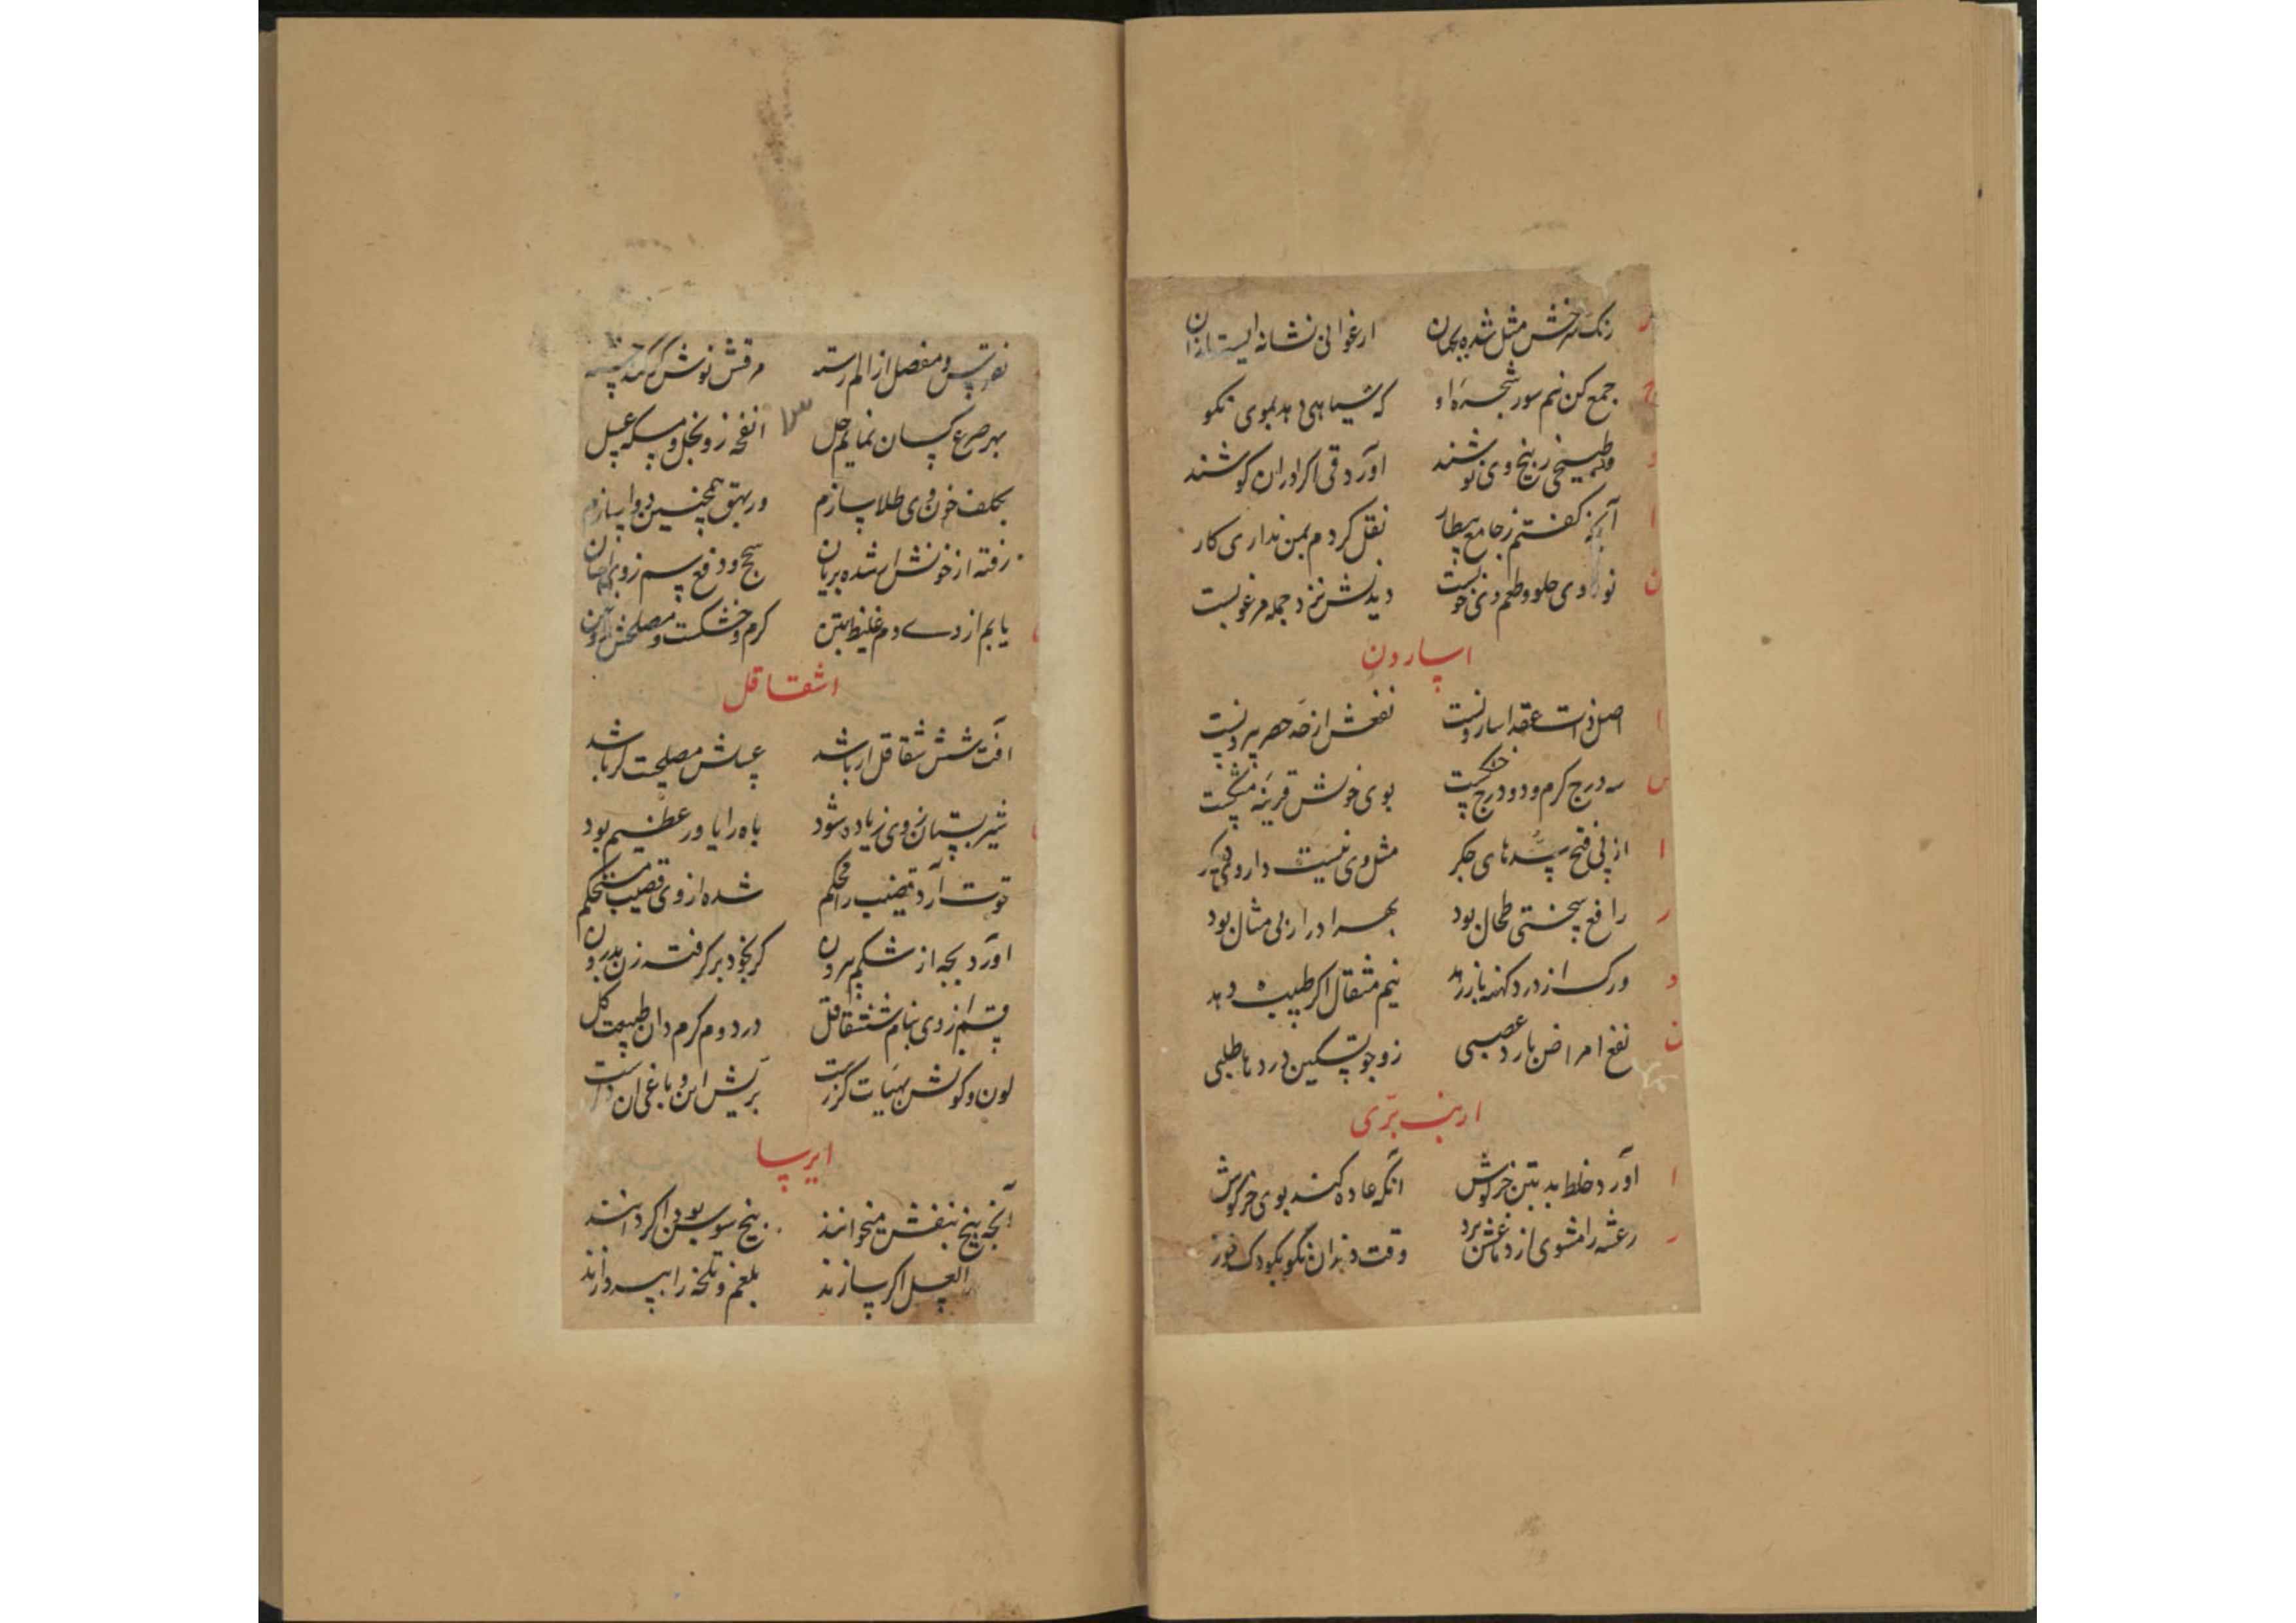 رنک سرخش مثل شده بجهان ارغوانی نشانه ایست ازان
جمع کن نیم سوز شجره او که سیاهی دهد بموی نکو
و طبیخی ز بیخ وی نوشند اورد قی اکر دران کوشند
آنچه کفتم ز جامع بیطار نقل کردم بمن نداری کار
نور وی حلو و طعم وی خوبست دیدنش نزد جمله مرغوبست
اسارون
اصل نبت است عقد اسارونست نفعش از حد حصر بیرونست
سه درج کرم و دو درج خشکست بوی خوش قرینه مشکست
از پی فتح سدهای جکر مثل وی نیست داروی دیکر
رافع سختی طحال بود بهر ادرار بی مثال بود
ورک از درد کهنه باز رهد نیم مثقال اکر طبیب دهد
نفع امراض بارد عصبی زو جو تسکین دردها طلبی
ارنب بری
اورد خلط بد بتن خرکوش انکه عاده کند بوی خرکوش
رعشه را مشوی از دماغش برد وقت دندان نکو بکودک خورد
نقرس و مفصل از الم رسته مرقش نوش کر کند خسته
بهر صرع کسان نمایم حل انفحه زو بخل و مسکه عسل
بکلف خون وی طلا سازم وربهق همچنین دوا سازم
رفته از خونش ار شده بریان سحج و دفع سم زوی احسان
یابم از وے دم غلیظ بتن کرم و خشکست و مصلحش روغن
اشقاقل
آفت شش شقاقل ار باشد عسلش مصلحت کر باشد
شیر پستان زوی زیاده شود باه را یاور عظیم بود
قوت آرد قضیب را محکم شده از وی قضیب مستحکم
اورد بچه از شکم بیرون کر بخود برکرفت زن بدرون
قسم از وی بنام شش قاقل در دوم کرم دان طبیعت کل
لون و کونش بهیات کزرست بریش این و باغی ان دکرست
ایرسا
آنچه بیخ بنفش میخوانند بیخ سوسن بود اکر دانند
العسل اکر سازند بلغم و تلخه را بپردازند